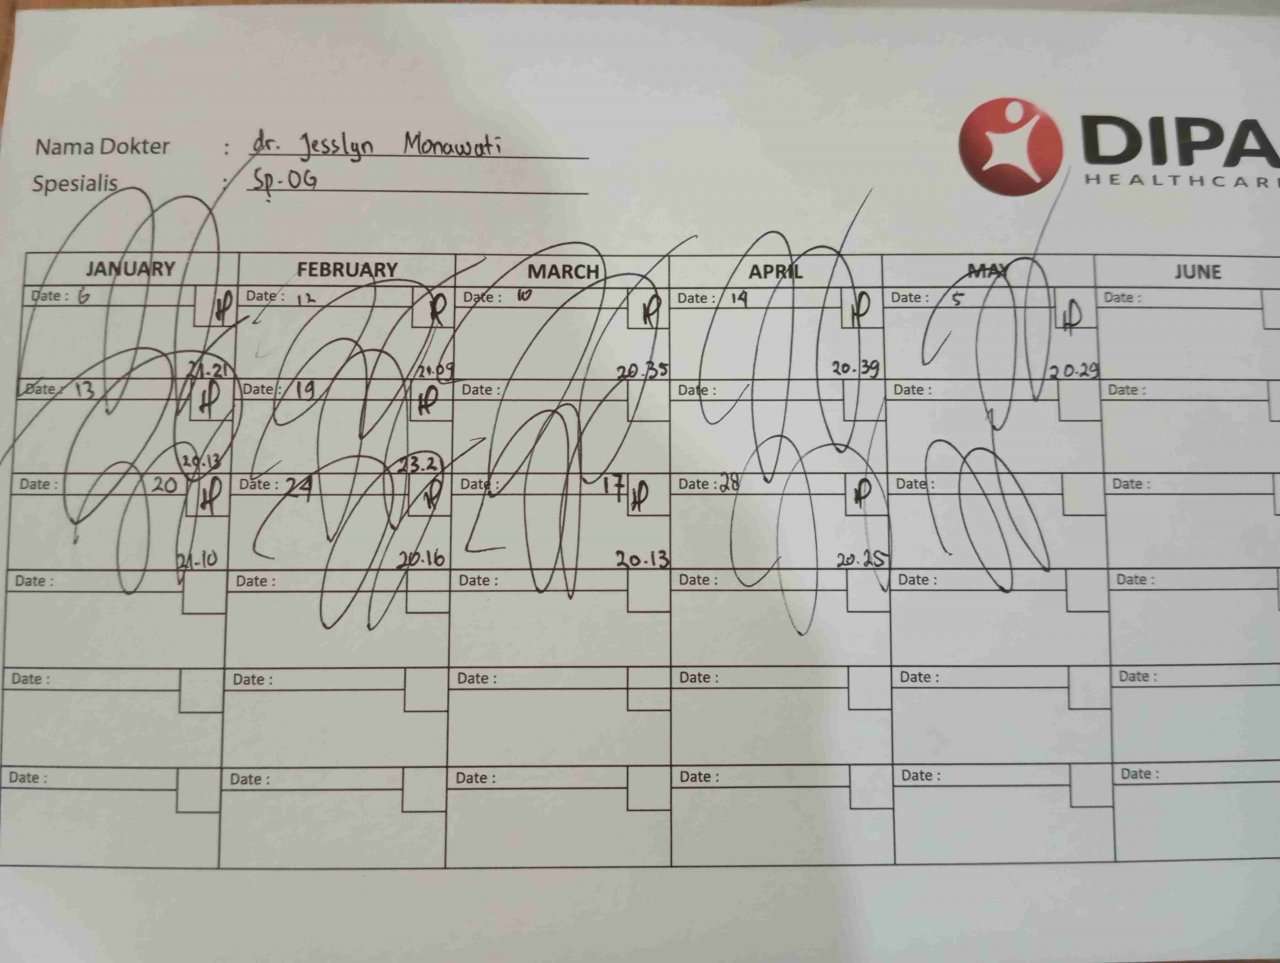 Nama Dokter : dr. Jesslyn Monawati
Spesialis : Sp.OG
DIPA
HEALTHCAR
JANUARY FEBRUARY MARCH APRIL MAY JUNE
Date : 6 Date : 12 Date : 10 Date : 14 Date : 5 Date :
21.21 21.09 20.35 20.39 20.29
Date : 13 Date : 19 Date : Date : Date : Date :
20.13 23.2
Date : 20 Date : 24 Date : 17 Date : 28 Date : Date :
21.10 20.16 20.13 20.25
Date : Date : Date : Date : Date : Date :
Date : Date : Date : Date : Date : Date :
Date : Date : Date : Date : Date : Date :